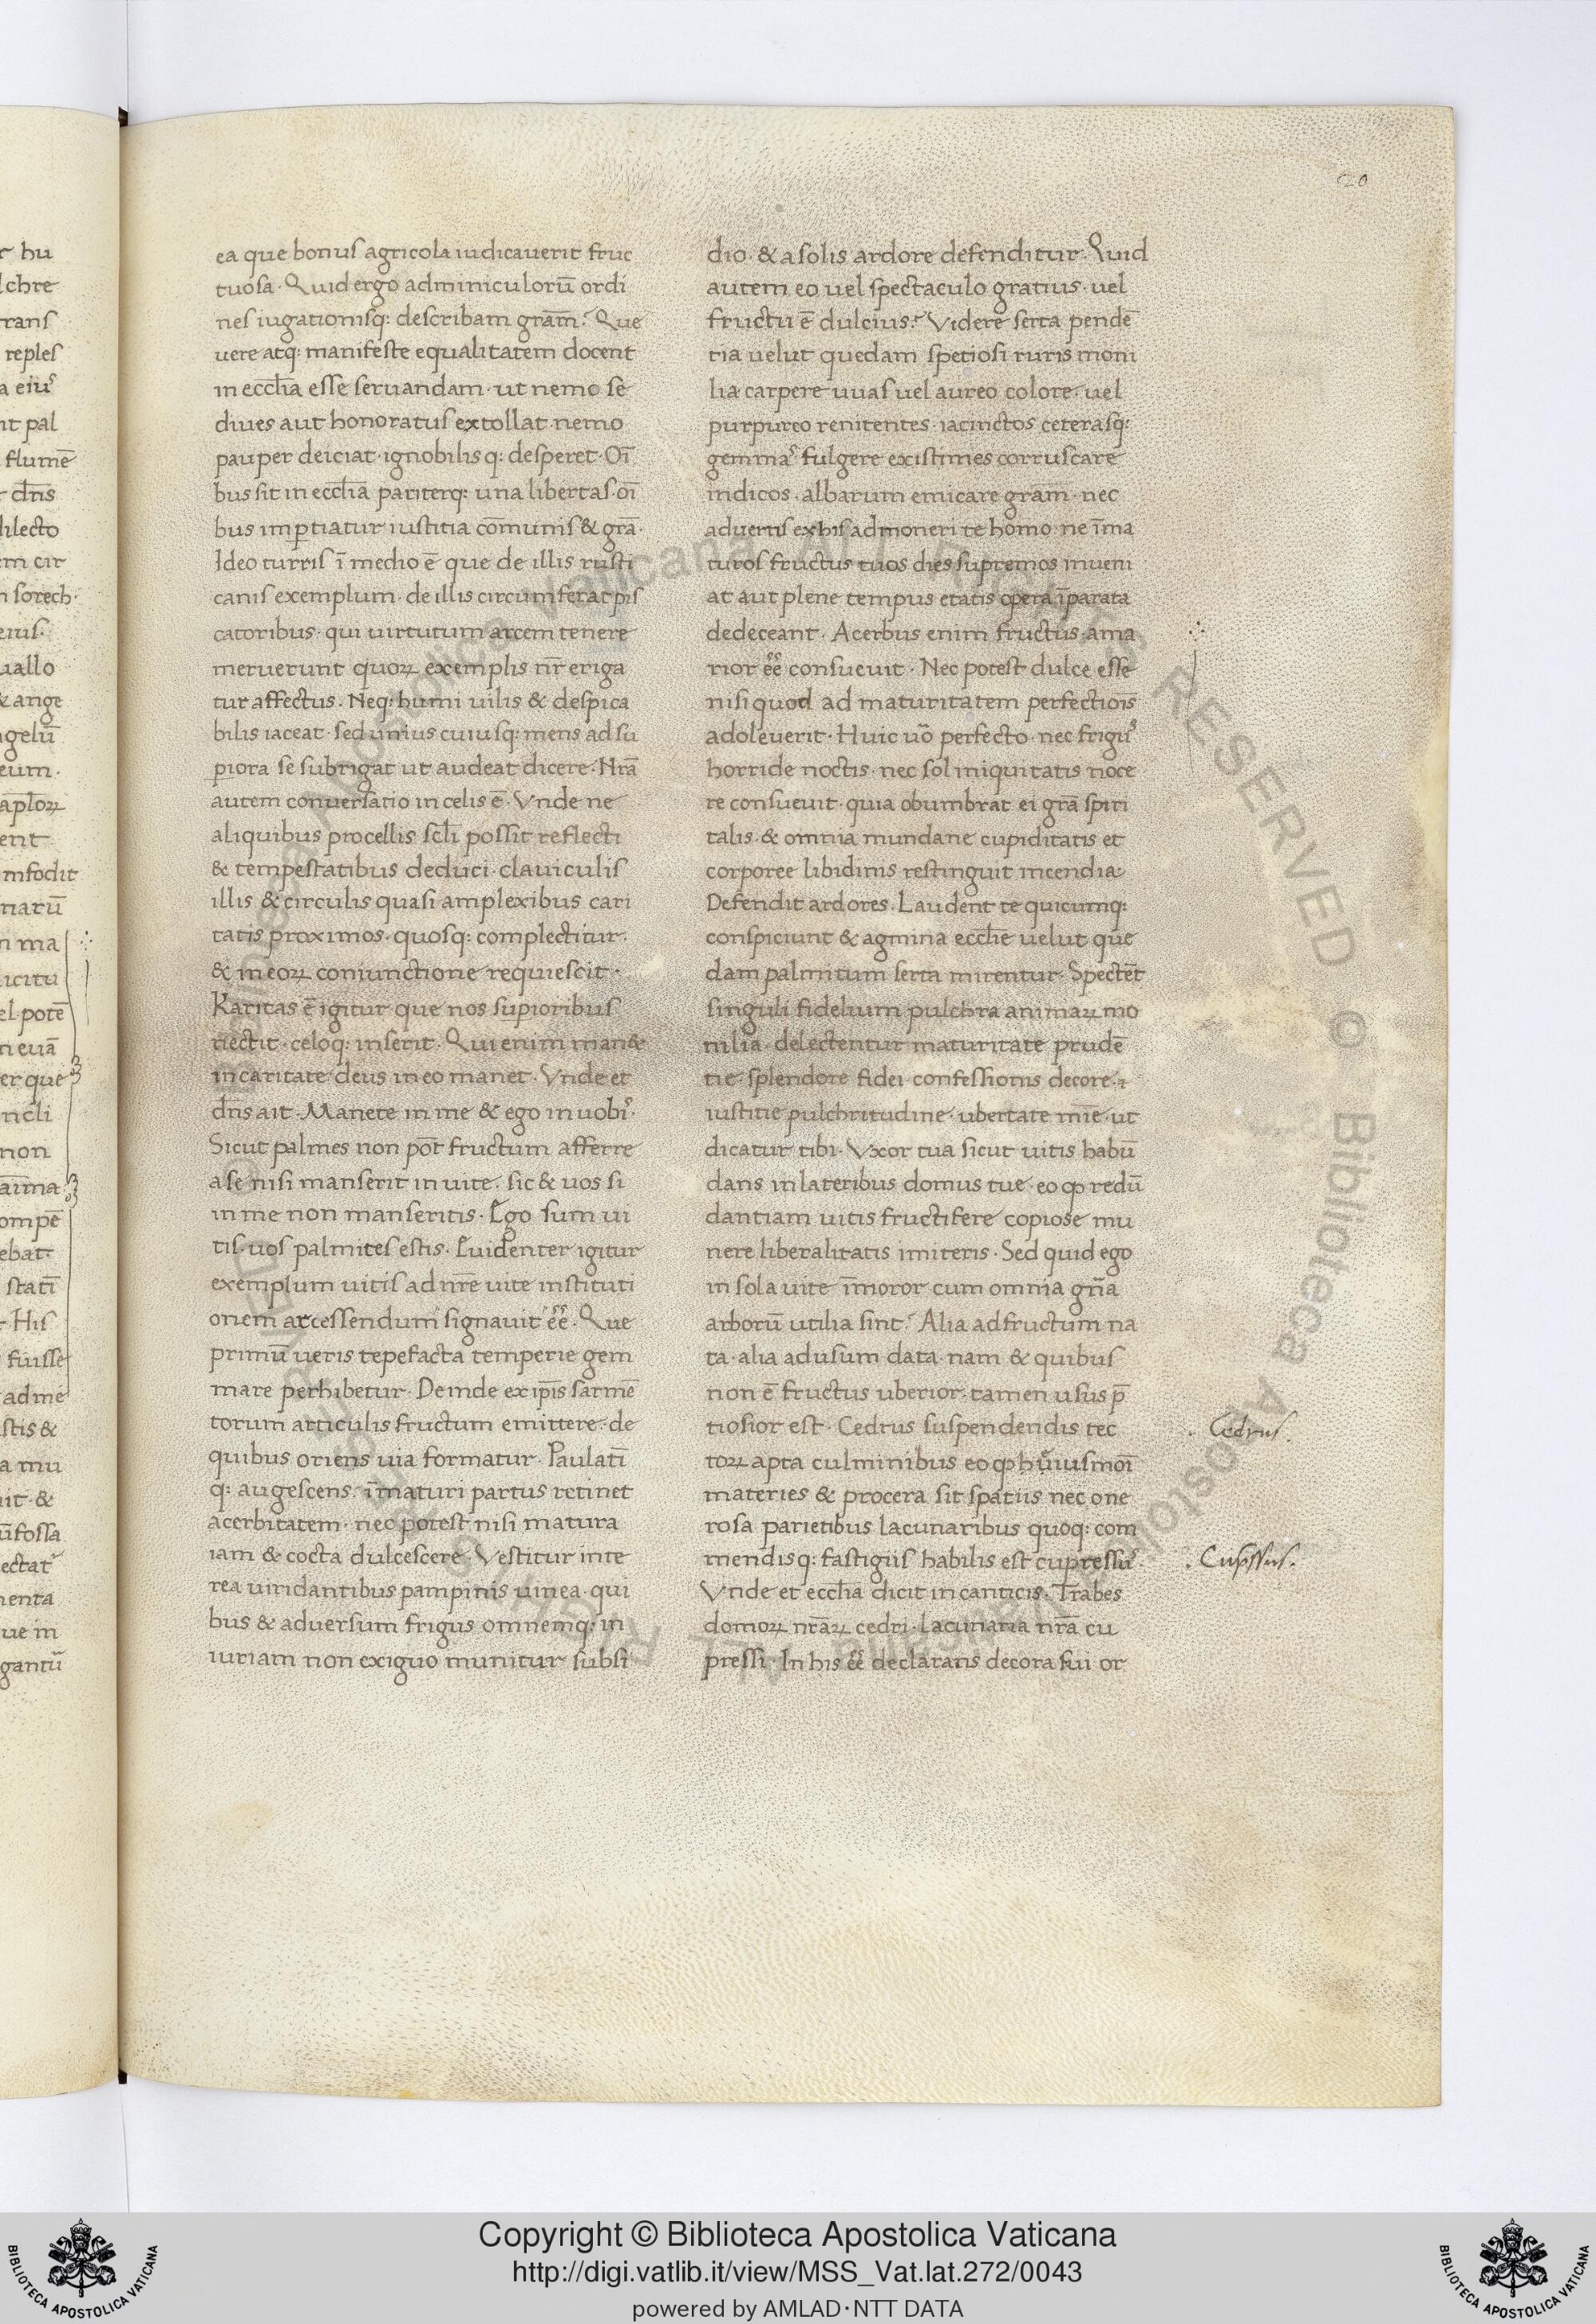 20
ea que bonus agricola iudicaverit fruc
tuosa. Quid ergo adminiculorū ordi
nes iugationisq: describam grām? Que
uere atq: manifeste equalitatem docent
in ecclīa esse seruandam. ut nemo se
diues aut honoratus extollat. nemo
pauper deiciat. ignobilisq: desperet. Oī
bus sit in ecclīa pariterq: una libertas. oī
bus imp̱tiatur iustitia cōmunis & grā.
Ideo turris ī medio ē que de illis rusti
canis exemplum. de illis circumferat pis
catoribus. qui uirtutum arcem tenere
meruerunt quoꝝ exemplis nr̄ eriga
tur affectus. Neq: humi uilis & despica
bilis iaceat. sed unius cuiusq: mens ad su
p̱iora se subrigat ut audeat dicere. Nrā
autem conversatio in celis ē. Vnde ne
aliquibus procellis scl̄i possit reflecti
& tempestatibus deduci. clauiculis
illis & circulis quasi amplexibus cari
tatis proximos. quosq: complectitur.
& in eoꝝ coniunctione requiescit.
Karitas ē igitur que nos sup̱ioribus
nectit. celoq: inserit. Qui enim man&
in caritate deus in eo manet. Vnde et
dn̄s ait. Manete in me & ego in uobis.
Sicut palmes non pōt fructum afferre
a se nisi manserit in uite. sic & uos si
in me non manseritis. Ego sum ui
tis. uos palmites estis. Euidenter igitur
exemplum uitis ad nr̄e uite instituti
onem arcessendum signauit ēē. Que
primū ueris tepefacta temperie gem
mare perhibetur. Deinde ex ip̄is sarmē
torum articulis fructum emittere. de
quibus oriens uia formatur. Paulatī
q: augescens. īmaturi partus retinet
acerbitatem. nec potest nisi matura
iam & cocta dulcescere. Vestitur inte
rea uiridantibus pampinis uinea. qui
bus & adversum frigus omnemq: in
iuriam non exiguo munitur subsi
dio. & a solis ardore defenditur. Quid
autem eo uel spectaculo gratius. uel
fructu ē dulcius? Videre serta pendē
tia uelut quedam spetiosi ruris moni
lia carpere uuas uel aureo colore. uel
purpureo renitentes. iacinctos ceterasq:
gemmas fulgere existimes corruscare
indicos. albarum emicare grām. nec
advertis ex his admoneri te homo. ne īma
turos fructus tuos dies supremos inueni
at aut plene tempus etatis opera īparata
dedeceant. Acerbus enim fructus ama
rior ēē consueuit. Nec potest dulce esse
nisi quod ad maturitatem perfectiōis
adoleverit. Huic uō perfecto. nec frigus
horride noctis. nec sol iniquitatis noce
re consueuit. quia obumbrat ei grā spiri
talis. & omnia mundane cupiditatis et
corporee libidinis restinguit incendia
Defendit ardores. Laudent te quicumq:
conspiciunt & agmina ecclīe uelut que
dam palmitum serta mirentur. Spectēt
singuli fidelium pulchra animaꝝ mo
nilia. delectentur maturitate prudē
tie. splendore fidei. confessionis decore. ⁊
iustitie pulchritudine. ubertate mīe. ut
dicatur tibi. Vxor tua sicut uitis habū
dans in lateribus domus tue. eo ꝙ redū
dantiam uitis fructifere copiose mu
nere liberalitatis imiteris. Sed quid ego
in sola uite īmoror cum omnia gn̄a
arborū utilia sint? Alia ad fructum na
ta. alia ad usum data. nam & quibus
non ē fructus uberior. tamen usus p̄
tiosior est. Cedrus suspendendis tec
toꝝ apta culminibus eo ꝙ huiusmōi
materies & procera sit spatiis nec one
rosa parietibus lacunaribus quoq: com
mendisq: fastigiis habilis est cupressus.
Vnde et ecclīa dicit in canticis. Trabes
domoꝝ nrāꝝ cedri. Lacunaria nrā cu
pressi. In his ēē declarans decora sui or
. Cedrus.
. Cup̱ssus.
Copyright © Biblioteca Apostolica Vaticana
http://digi.vatlib.it/view/MSS_Vat.lat.272/0043
powered by AMLAD·NTT DATA
BIBLIOTECA APOSTOLICA VATICANA
BIBLIOTECA APOSTOLICA VATICANA